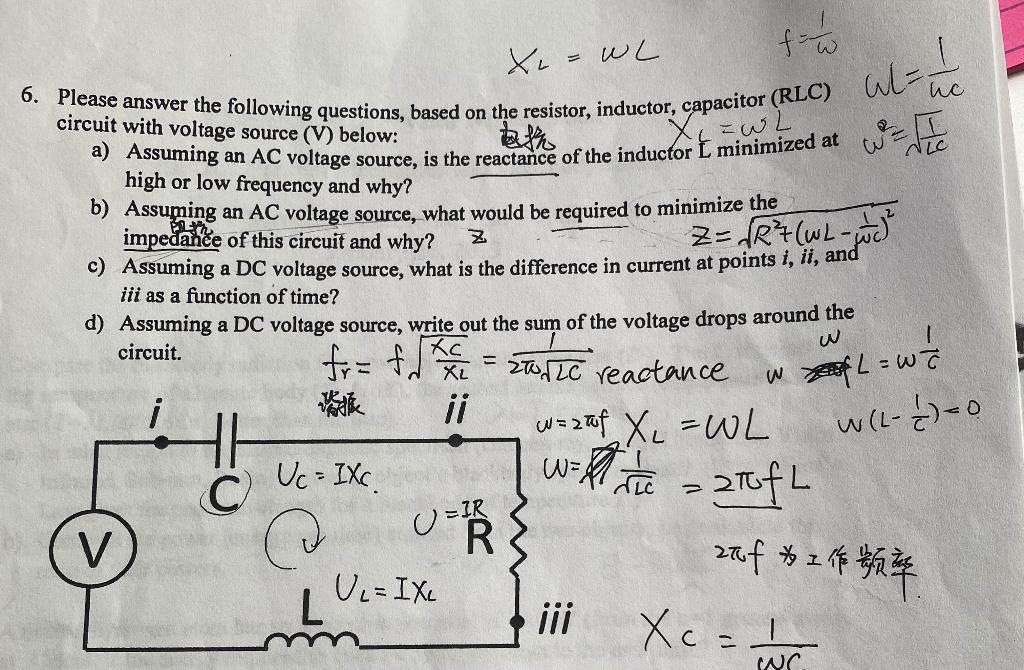 X_L = ωL
f = 1/ω
ωL = 1/ωC
6. Please answer the following questions, based on the resistor, inductor, capacitor (RLC)
circuit with voltage source (V) below:
电抗
X_L = ωL
ω² = √(1/LC)
a) Assuming an AC voltage source, is the reactance of the inductor L minimized at
high or low frequency and why?
b) Assuming an AC voltage source, what would be required to minimize the
阻抗
impedance of this circuit and why? Z
Z = √(R² + (ωL - 1/ωC)²)
c) Assuming a DC voltage source, what is the difference in current at points i, ii, and
iii as a function of time?
d) Assuming a DC voltage source, write out the sum of the voltage drops around the
circuit.
f_r = f√(X_C/X_L) = 1/(2π√LC) reactance
ω L = ω 1/C
谐振
i
ii
ω = 2πf X_L = ωL
ω(L - 1/C) = 0
ω = 1/√LC
= 2πfL
C
U_C = IX_C
U = IR
R
V
2πf 为工作频率
L
U_L = IX_L
iii
X_C = 1/ωC